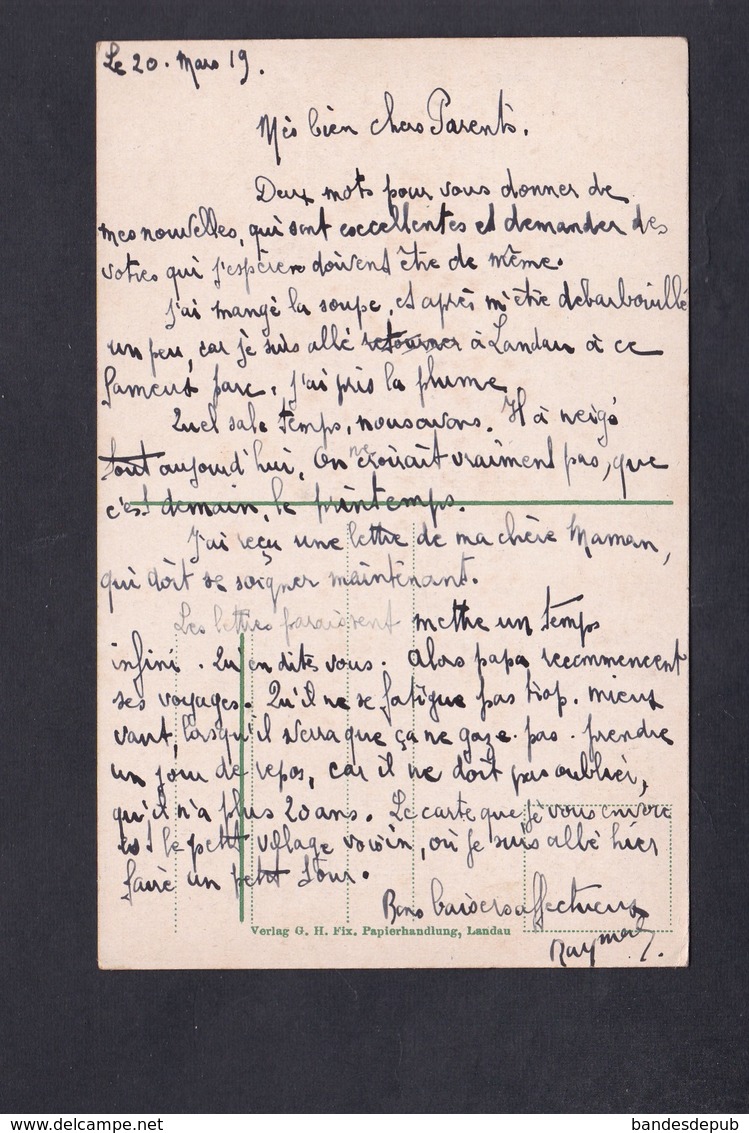 Le 20. Mars 19.
Mes bien chers Parents.
Deux mots pour vous donner de
mes nouvelles, qui sont excellentes et demander des
votres qui j'espère doivent être de même.
J'ai mangé la soupe, et après m'être debarbouillé
un peu, car je suis allé retourner à Landau à ce
fameux parc, j'ai pris la plume
Quel sale temps, nous avons. Il à neigé
tout aujourd'hui, On ne croirait vraiment pas, que
c'est demain, le printemps.
J'ai reçu une lettre de ma chère Maman,
qui doit se soigner maintenant.
Les lettres paraissent mettre un temps
infini. Qu'en dites vous. Alors papa recommencent
ses voyages. Qu'il ne se fatigue pas trop. mieux
vaut, lorsqu'il verra que ça ne gaze pas. prendre
un jour de repos, car il ne doit pas oublier,
qu'il n'a plus 20 ans. Le carte que je vous envoie
est le petit village voisin, où je suis allé hier
faire un petit tour.
Bons baisers affectueux
Verlag G. H. Fix. Papierhandlung, Landau
Raymond.
delcampe.net
bandesdepub